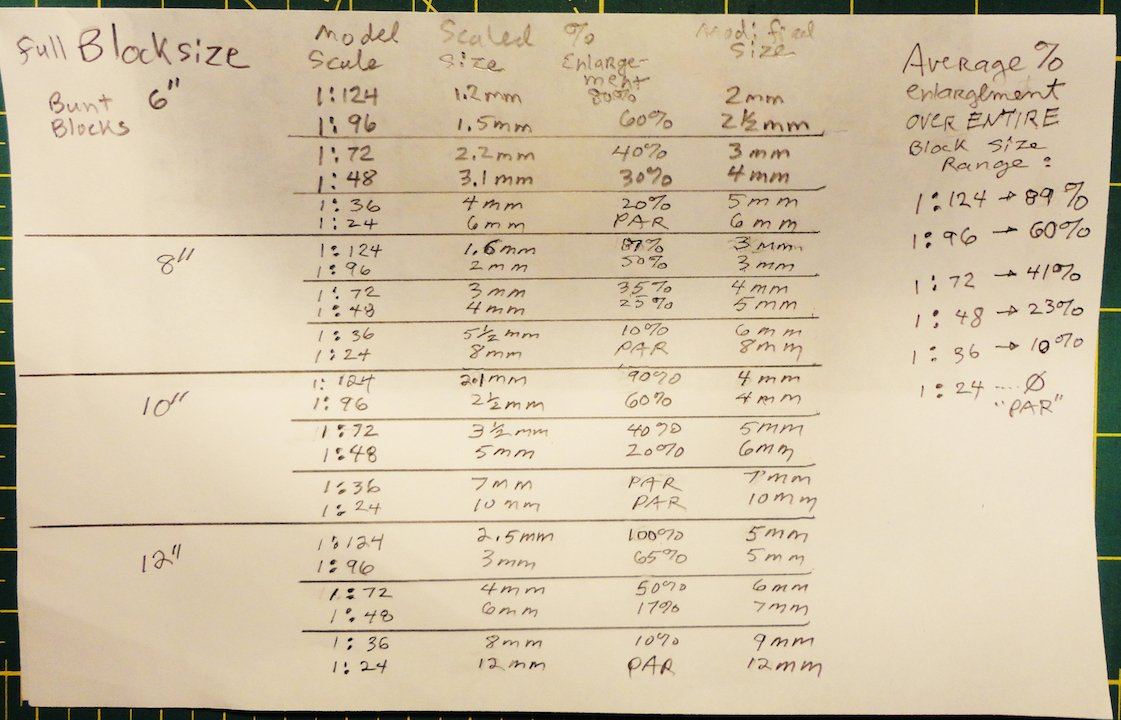 Full Blocksize Model Scale Scaled Size % Enlargement Modified Size
Bunt Blocks 6" 1:124 1.2mm 80% 2mm
1:96 1.5mm 60% 2½mm
1:72 2.2mm 40% 3mm
1:48 3.1mm 30% 4mm
1:36 4mm 20% 5mm
1:24 6mm PAR 6mm
8" 1:124 1.6mm 87% 3mm
1:96 2mm 50% 3mm
1:72 3mm 35% 4mm
1:48 4mm 25% 5mm
1:36 5½mm 10% 6mm
1:24 8mm PAR 8mm
10" 1:124 2.1mm 90% 4mm
1:96 2½mm 60% 4mm
1:72 3½mm 40% 5mm
1:48 5mm 20% 6mm
1:36 7mm PAR 7mm
1:24 10mm PAR 10mm
12" 1:124 2.5mm 100% 5mm
1:96 3mm 65% 5mm
1:72 4mm 50% 6mm
1:48 6mm 17% 7mm
1:36 8mm 10% 9mm
1:24 12mm PAR 12mm
Average %
enlargement
OVER ENTIRE
Block Size
Range:
1:124 → 89%
1:96 → 60%
1:72 → 41%
1:48 → 23%
1:36 → 10%
1:24 .... Ø
"PAR"